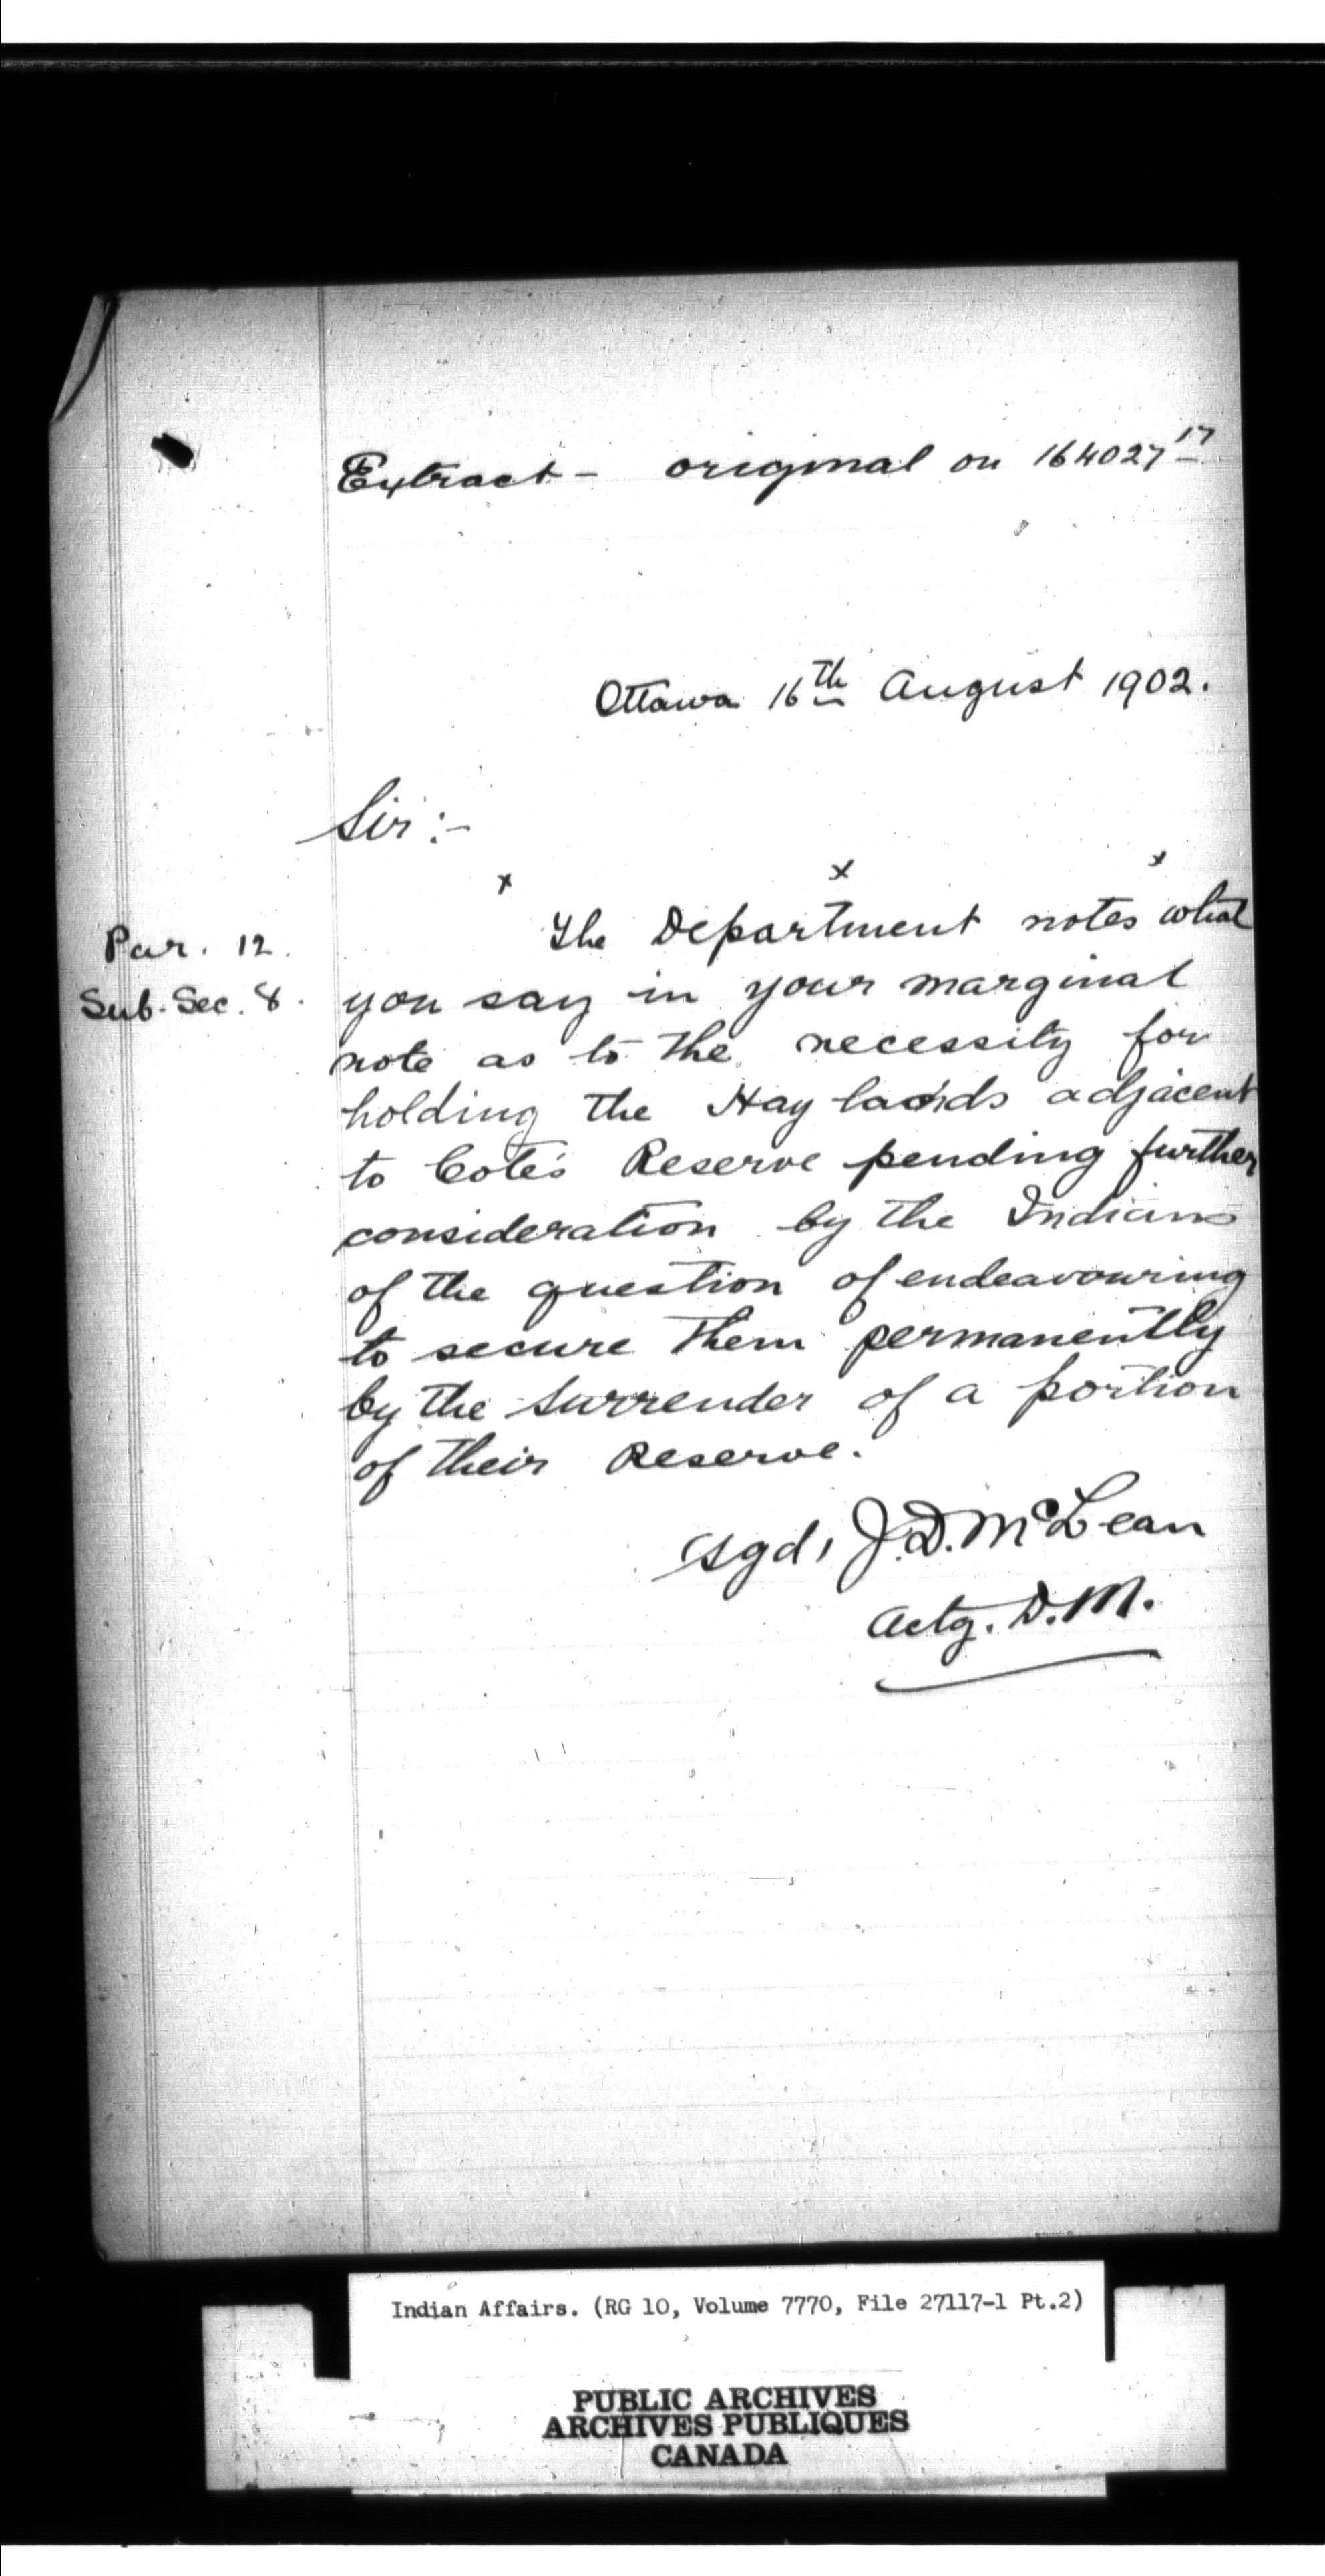 Extract - original on 164027 17
Ottawa 16th August 1902.
Sir:-
x x x
The Department notes what
Par. 12.
Sub. Sec. 8. you say in your marginal
note as to the necessity for
holding the Hay lands adjacent
to Cote's Reserve pending further
consideration by the Indians
of the question of endeavouring
to secure them permanently
by the surrender of a portion
of their Reserve.
(sgd) J. D. McLean
Actg. D.M.
Indian Affairs. (RG 10, Volume 7770, File 27117-1 Pt.2)
PUBLIC ARCHIVES
ARCHIVES PUBLIQUES
CANADA